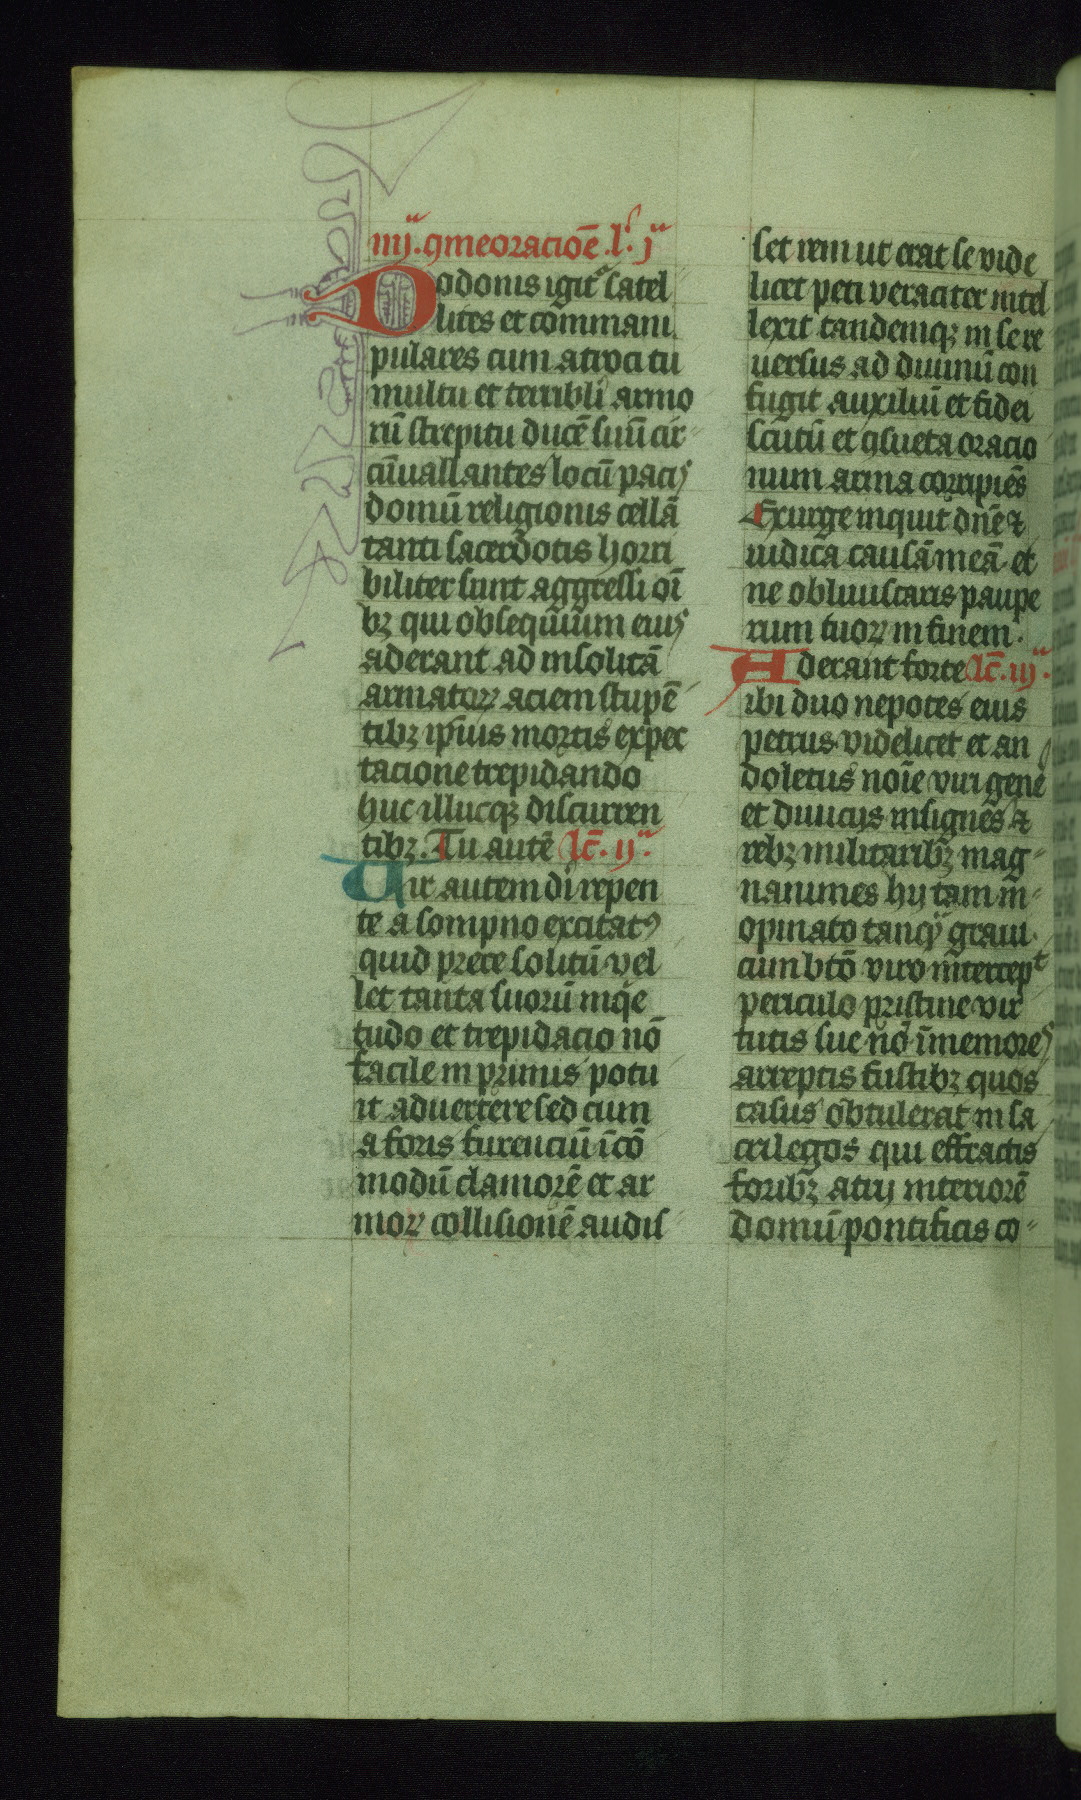 iiij. ꝯmeoracioē. l͛. j
Dodonis igit͛ satel
lites et commani
pulares cum atroci tu
multu et terribli armo
rū strepitu ducē suū cir
cūuallantes locū pacis
domū religionis cellā
tanti sacerdotis horri
biliter sunt aggressi oī
bꝫ qui obsequium eius
aderant ad insolitā
armatoꝝ aciem stupē
tibꝫ ip̄ius mortis expec
tacione trepidando
huc illucqꝫ discurren
tibꝫ. Tu autē lc̄. ij.
Uir autem di͛ repen
te a sompno excitatꝰ
quid preter solitū vel
let tanta suorū inq̄e
tudo et trepidacio nō
facile in primis potu
it aduertere sed cum
a foris furenciū īcō
modū clamorē et ar
moꝝ collisionē audis
set rem ut erat se vide
licet peti veraciter intel
lexit tandemqꝫ in se re
uersus ad diuinū con
fugit auxiliū et fidei
scutū et ꝯsueta oracio
num arma corripiēs
Exurge inquit dn̄e ⁊
iudica causā meā et
ne obliuiscaris paupe
rum tuoꝝ in finem.
Aderant forte lc̄. iij.
ibi duo nepotes eius
petrus videlicet et an
doletus noīe viri gene
et diuicijs insignes ⁊
rebꝫ militaribꝫ mag
nanimes hij tam in
opinato tanqͣ graui
cum btō viro intercepᵗ
periculo pristine vir
tutis sue nō īmemores
arreptis fustibꝫ quos
casus obtulerat in sa
crilegos qui effractis
foribꝫ atrij interiorē
domū pontificis co